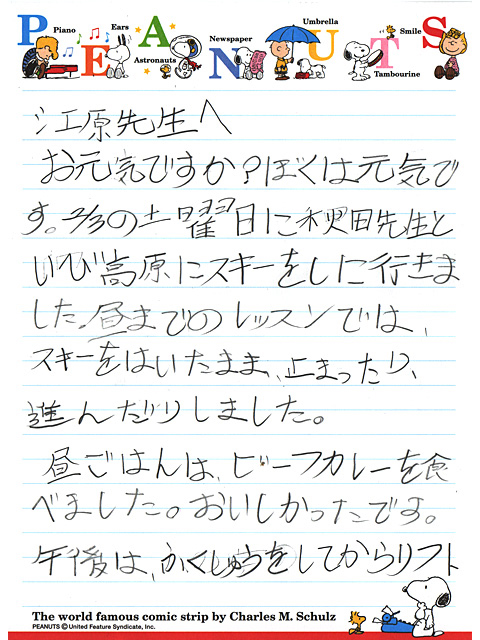 PEANUTS
Piano
Ears
Astronauts
Newspaper
Umbrella
Tambourine
Smile
江原先生へ
お元気ですか?ぼくは元気で
す。2/3の土曜日に秋田先生と
いび高原にスキーをしに行きま
した。昼までのレッスンでは、
スキーをはいたまま、止まったり、
進んだりしました。
昼ごはんは、ビーフカレーを食
べました。おいしかったです。
午後は、ふくしゅうをしてからリフト
The world famous comic strip by Charles M. Schulz
PEANUTS © United Feature Syndicate, Inc.